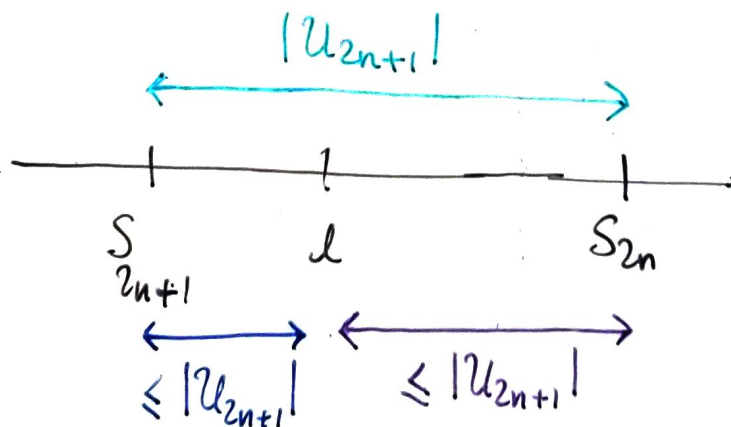 |U_{2n+1}|
S_{2n+1} l S_{2n}
≤ |U_{2n+1}| ≤ |U_{2n+1}|